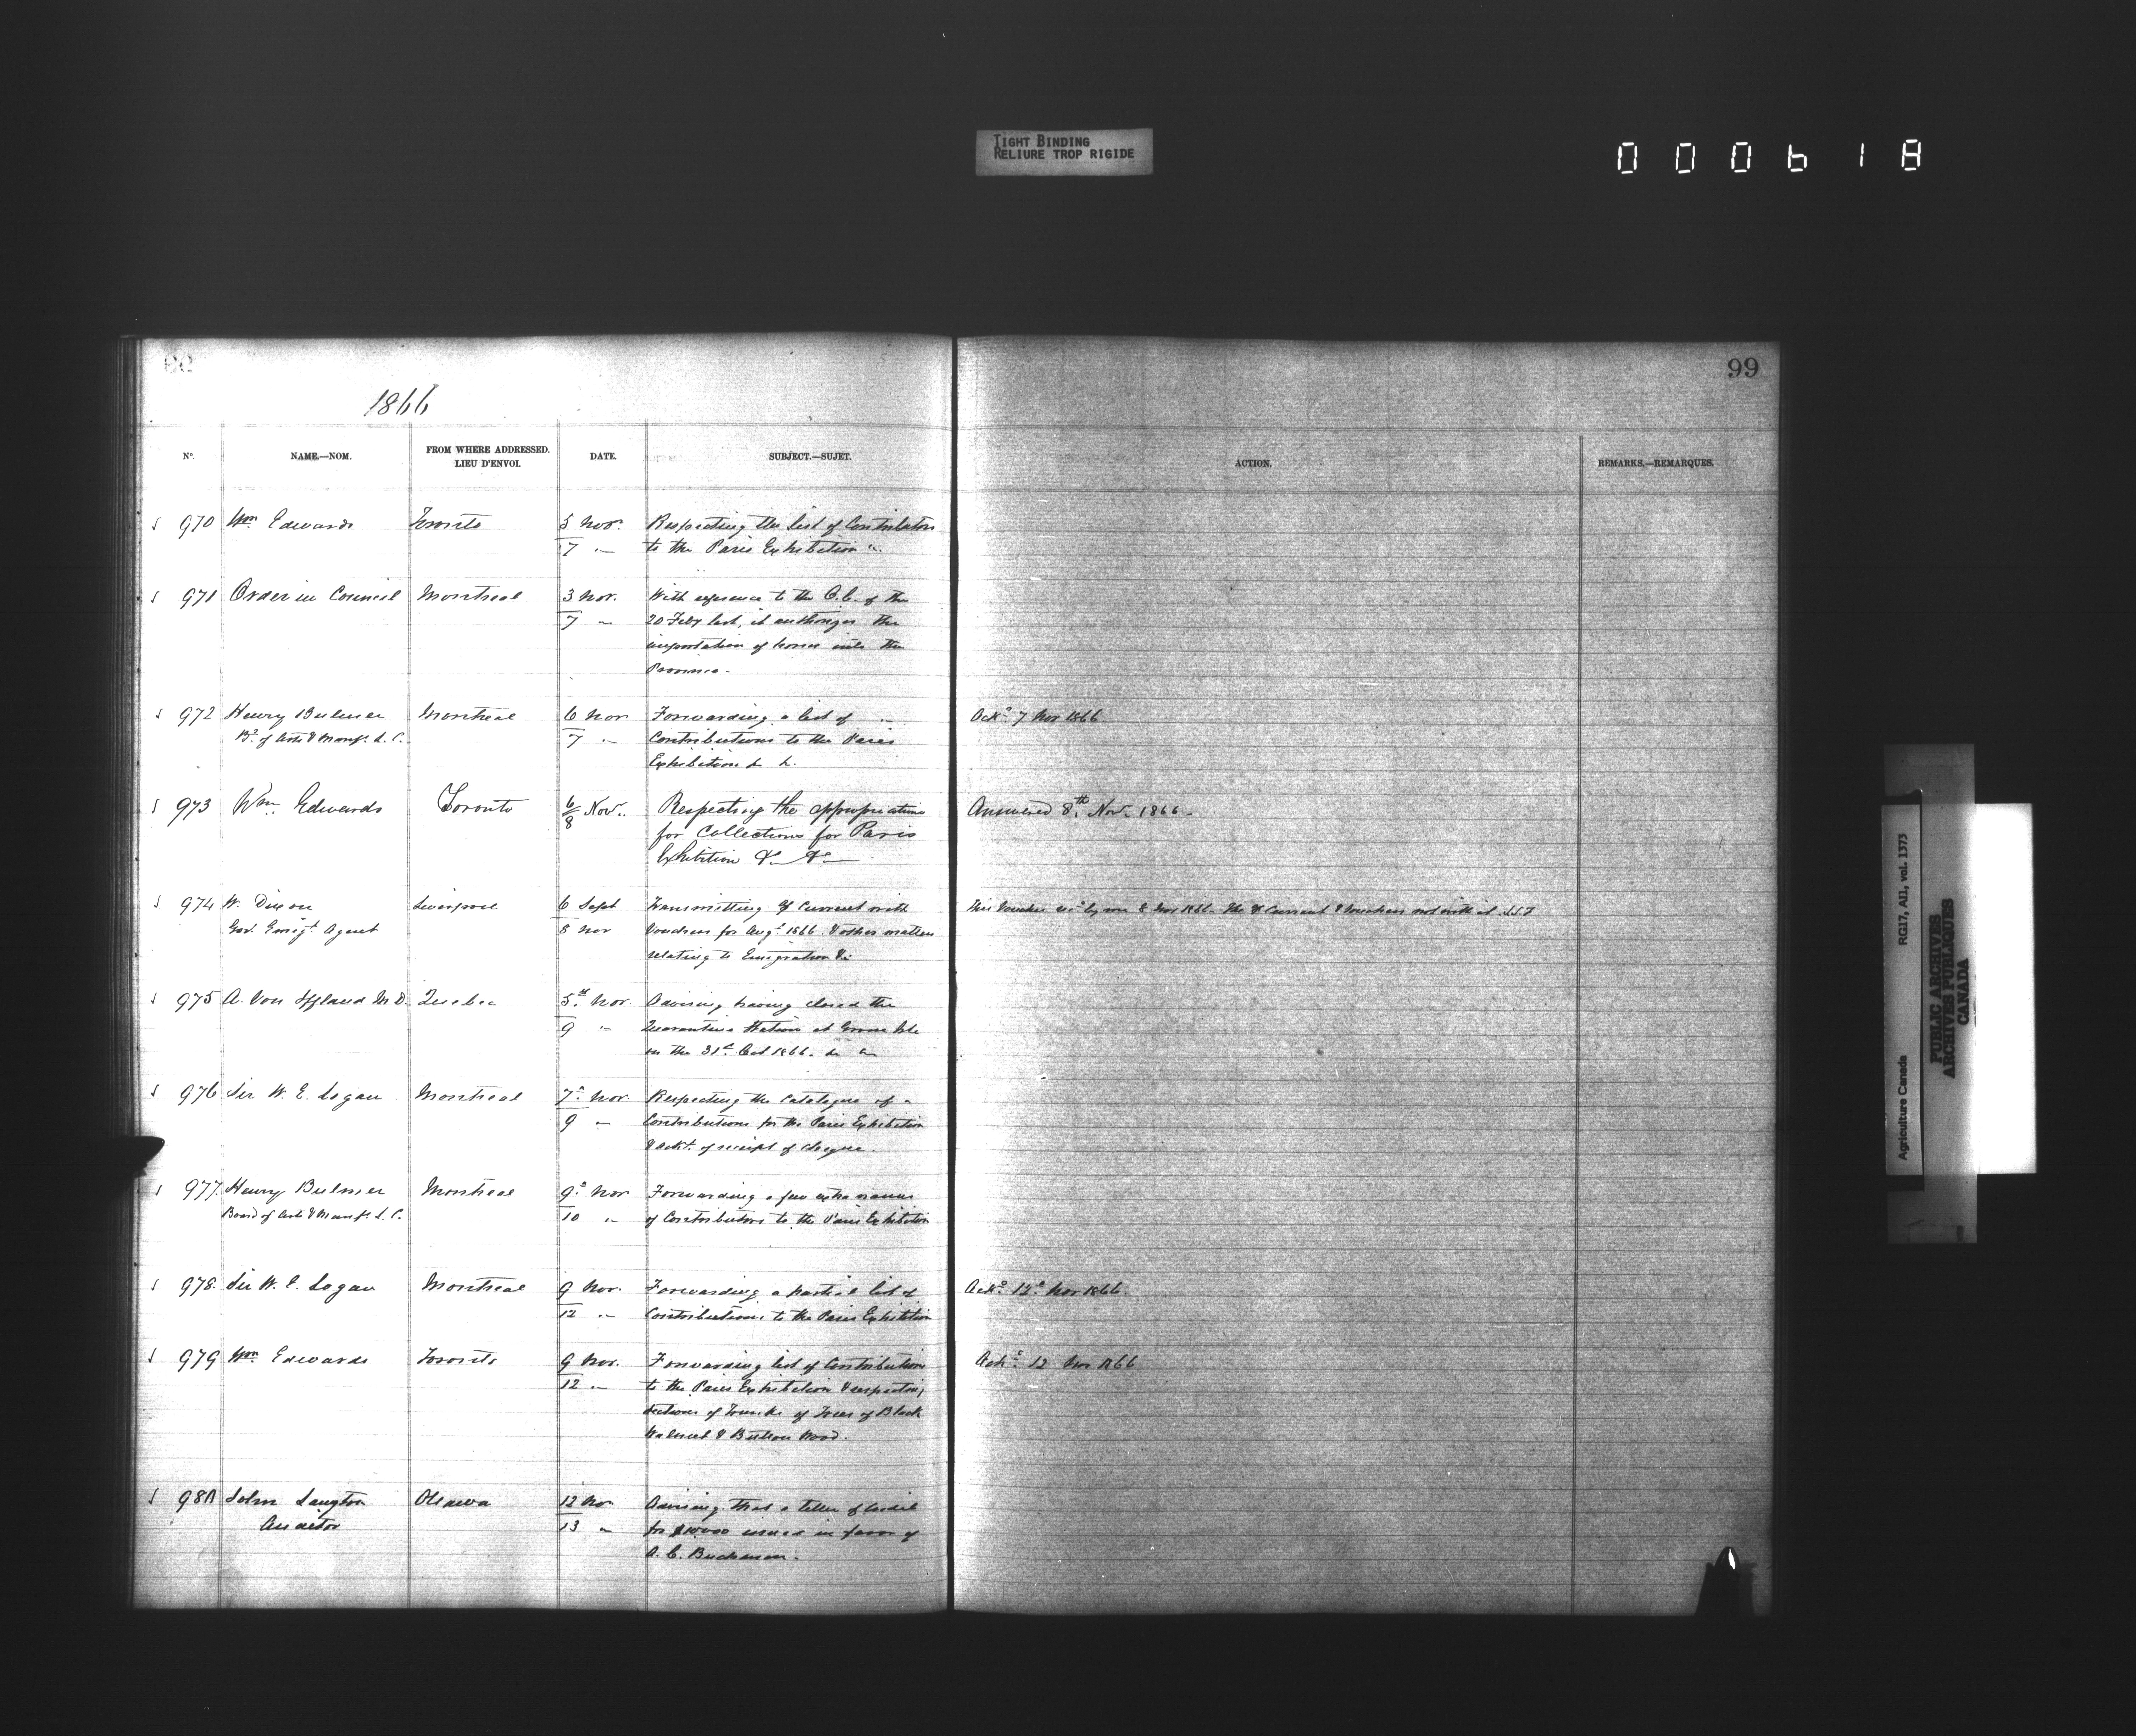 TIGHT BINDING
RELIURE TROP RIGIDE
000618
99
1866
N°. NAME.—NOM. FROM WHERE ADDRESSED. LIEU D'ENVOI. DATE. SUBJECT.—SUJET. ACTION. REMARKS.—REMARQUES.
970 Wm Edwards Toronto 5 Nov. Respecting the list of Contributors
7 " to the Paris Exhibition "
971 Order in Council Montreal 3 Nov. With reference to the O.C. of the
7 " 20 Feby last, it authorizes the
importation of horses into the
Province.
972 Henry Bulmer Montreal 6 Nov Forwarding a list of Ackd 7 Nov 1866
Bd of Arts & Manufs. L. C. 7 " Contributions to the Paris
Exhibition & &.
973 Wm. Edwards Toronto 6/8 Nov. Respecting the appropriation Answered 8th. Nov. 1866.
for Collections for Paris
Exhibition &c &c
974 W. Dixon Liverpool 6 Sept Transmitting % Current with This Voucher recd by me 8 Nov 1866. The % Current & Vouchers not with it
Gov. Emigt. Agent 8 Nov Vouchers for Augt 1866 & other matters
relating to Emigration &c
975 A. Von Iffland M.D. Quebec 5th Nov. Advising having closed the
9 " Quarantine Station at Grosse Isle
on the 31st Oct 1866. &c
976 Sir W. E. Logan Montreal 7th Nov. Respecting the Catalogue of
9 " Contributions for the Paris Exhibition
& ackt. of receipt of cheque.
977 Henry Bulmer Montreal 9th Nov Forwarding a few extra names
Board of Arts & Manufs. L. C. 10 " of Contributors to the Paris Exhibition
978 Sir W. E. Logan Montreal 9 Nov. Forwarding a partial list of Ackd. 12th Nov 1866.
12 " Contributions to the Paris Exhibition
979 Wm Edwards Toronto 9 Nov. Forwarding list of Contributions Ackd. 12 Nov 1866
12 " to the Paris Exhibition & respecting
sections of Trunks of Trees of Black
Walnut & Button Wood.
980 John Langton Ottawa 12 Nov Advising that a letter of Credit
Auditor 13 " for $10000 issued in favor of
A. C. Buchanan.
Agriculture Canada RG17, AII, vol. 1373
PUBLIC ARCHIVES
ARCHIVES PUBLIQUES
CANADA